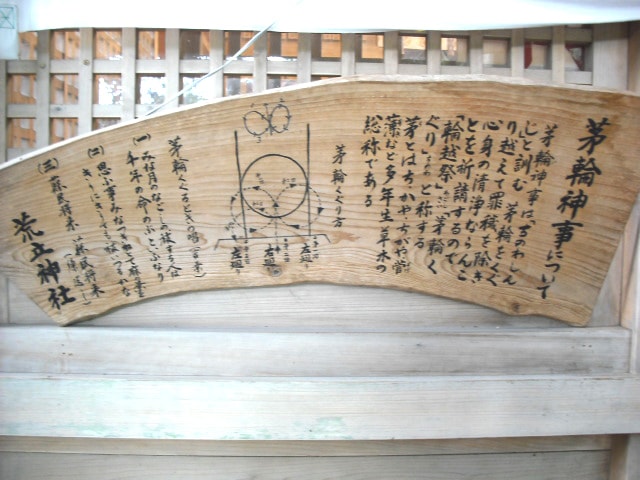 茅輪神事について
茅輪神事は、ちのわしん
じと訓む 茅輪をくぐ
り越えて罪穢を除き
心身の清浄ならんこ
とを祈請するので
「輪越祭」… 茅輪く
ぐり」とも称する
茅とは ちがや 菅
薄など多年生草木の
総称である
茅輪くぐり方
左廻り
右廻り
左廻り
茅輪くぐるときの唱え言葉
(一) みな月のなごしの祓する人は
千年の命のぶといふなり
(二) 思ふ事みなつきねとて麻の葉を
きりにきりても祓いつるかな
(三) 蘇民将来 蘇民将来
(繰返し)
荒立神社